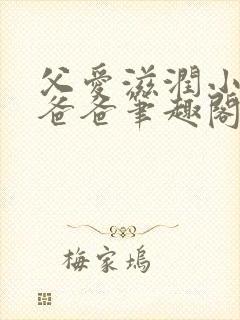 父愛滋潤小
爸爸筆趣閣
梅家塢